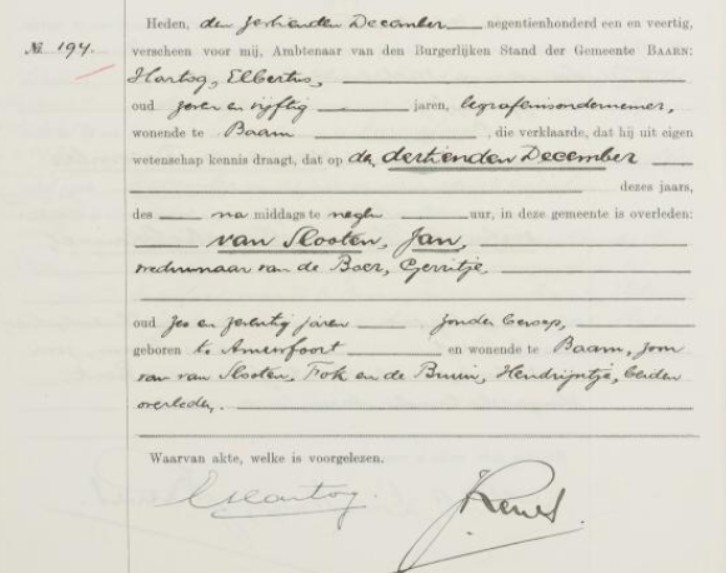 Heden, den zestienden December negentienhonderd een en veertig,
№ 194. verscheen voor mij, Ambtenaar van den Burgerlijken Stand der Gemeente BAARN:
Hartog, Elbertus,
oud zeven en vijftig jaren, begrafenisondernemer,
wonende te Baarn , die verklaarde, dat hij uit eigen
wetenschap kennis draagt, dat op den dertienden December
dezes jaars,
des na middags te negen uur, in deze gemeente is overleden:
van Slooten, Jan,
weduwnaar van de Boer, Gerritje,
oud zes en zeventig jaren zonder beroep,
geboren te Amersfoort en wonende te Baarn, zoon
van van Slooten, Fok en de Bruin, Hendrijntje, beiden
overleden.
Waarvan akte, welke is voorgelezen.
EHartog.